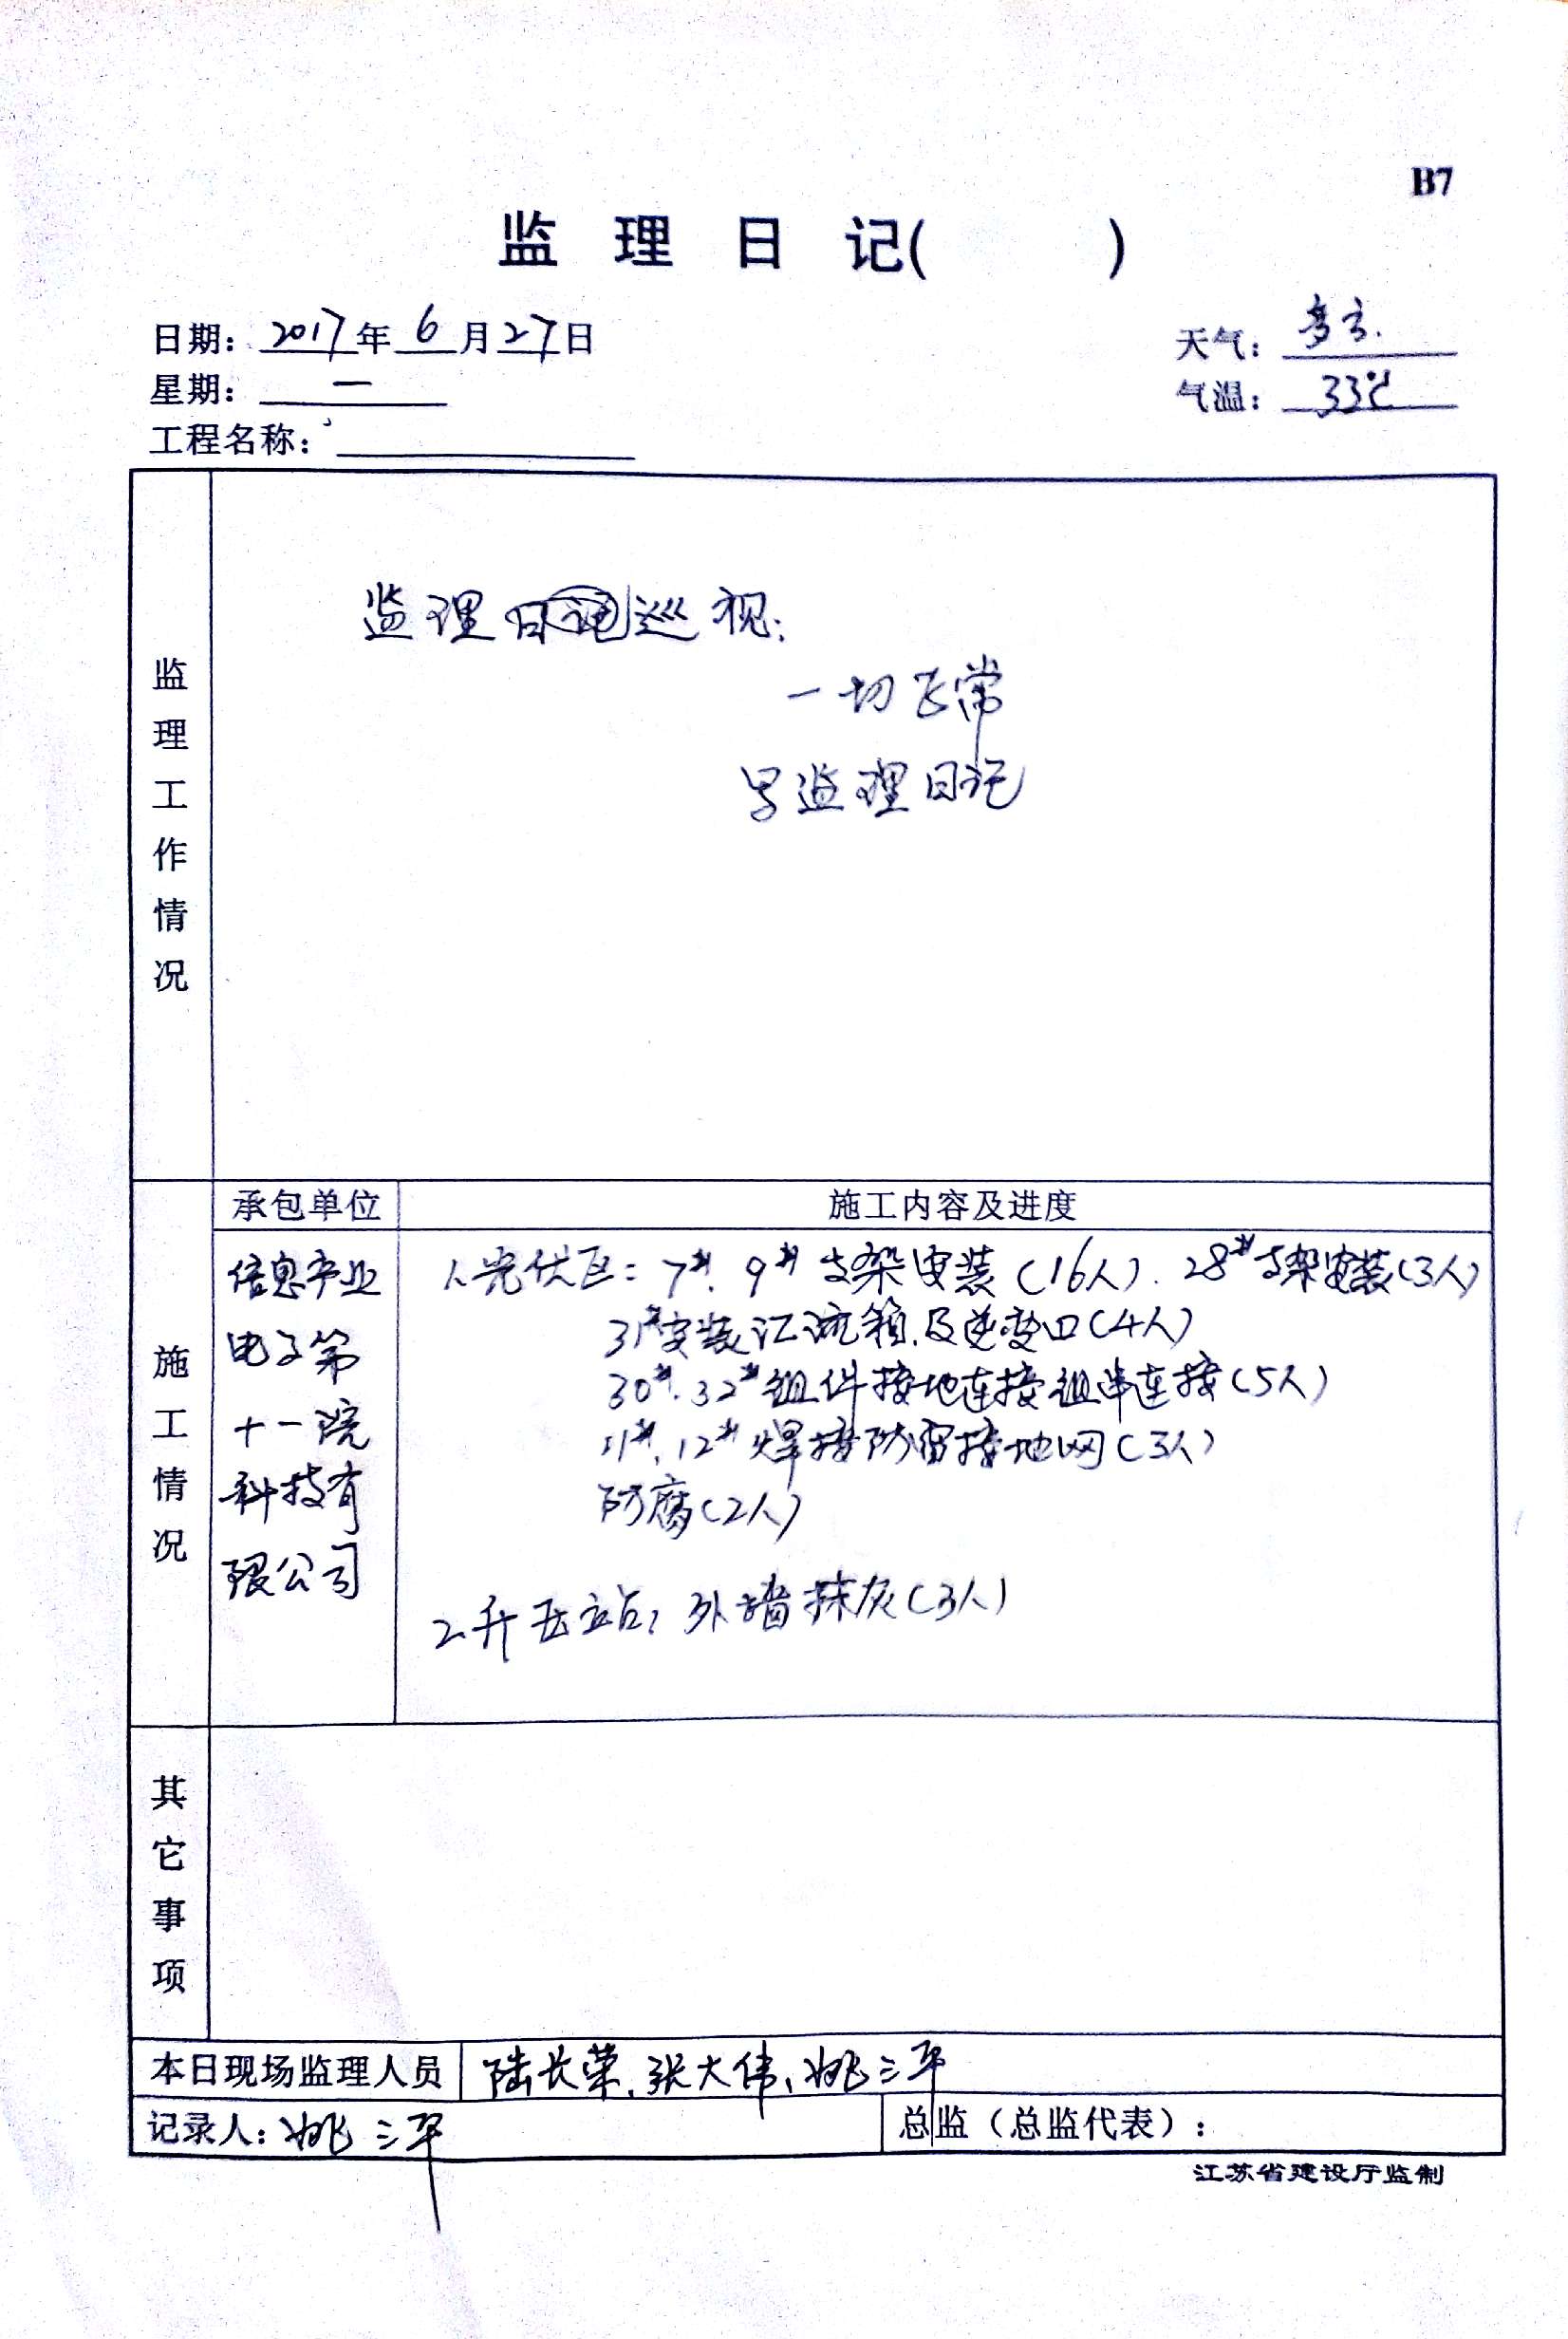 B7
监 理 日 记(          )
日期：2017年6月27日
天气：多云.
星期：一
气温：33℃
工程名称：
监理工作情况
监理日记巡视：
一切正常
写监理日记
施工情况
承包单位
施工内容及进度
信息产业
电子第
十一院
科技有
限公司
1、光伏区：7#、9#支架安装（16人）、28#支架安装（3人）
31#安装汇流箱及逆变口（4人）
30#、32#组件接地连接组串连接（5人）
11#、12#焊接防雷接地网（3人）
防腐（2人）
2、升压站：外墙抹灰（3人）
其它事项
本日现场监理人员
陆长荣、张大伟、姚三平
记录人：姚三平
总监（总监代表）：
江苏省建设厅监制